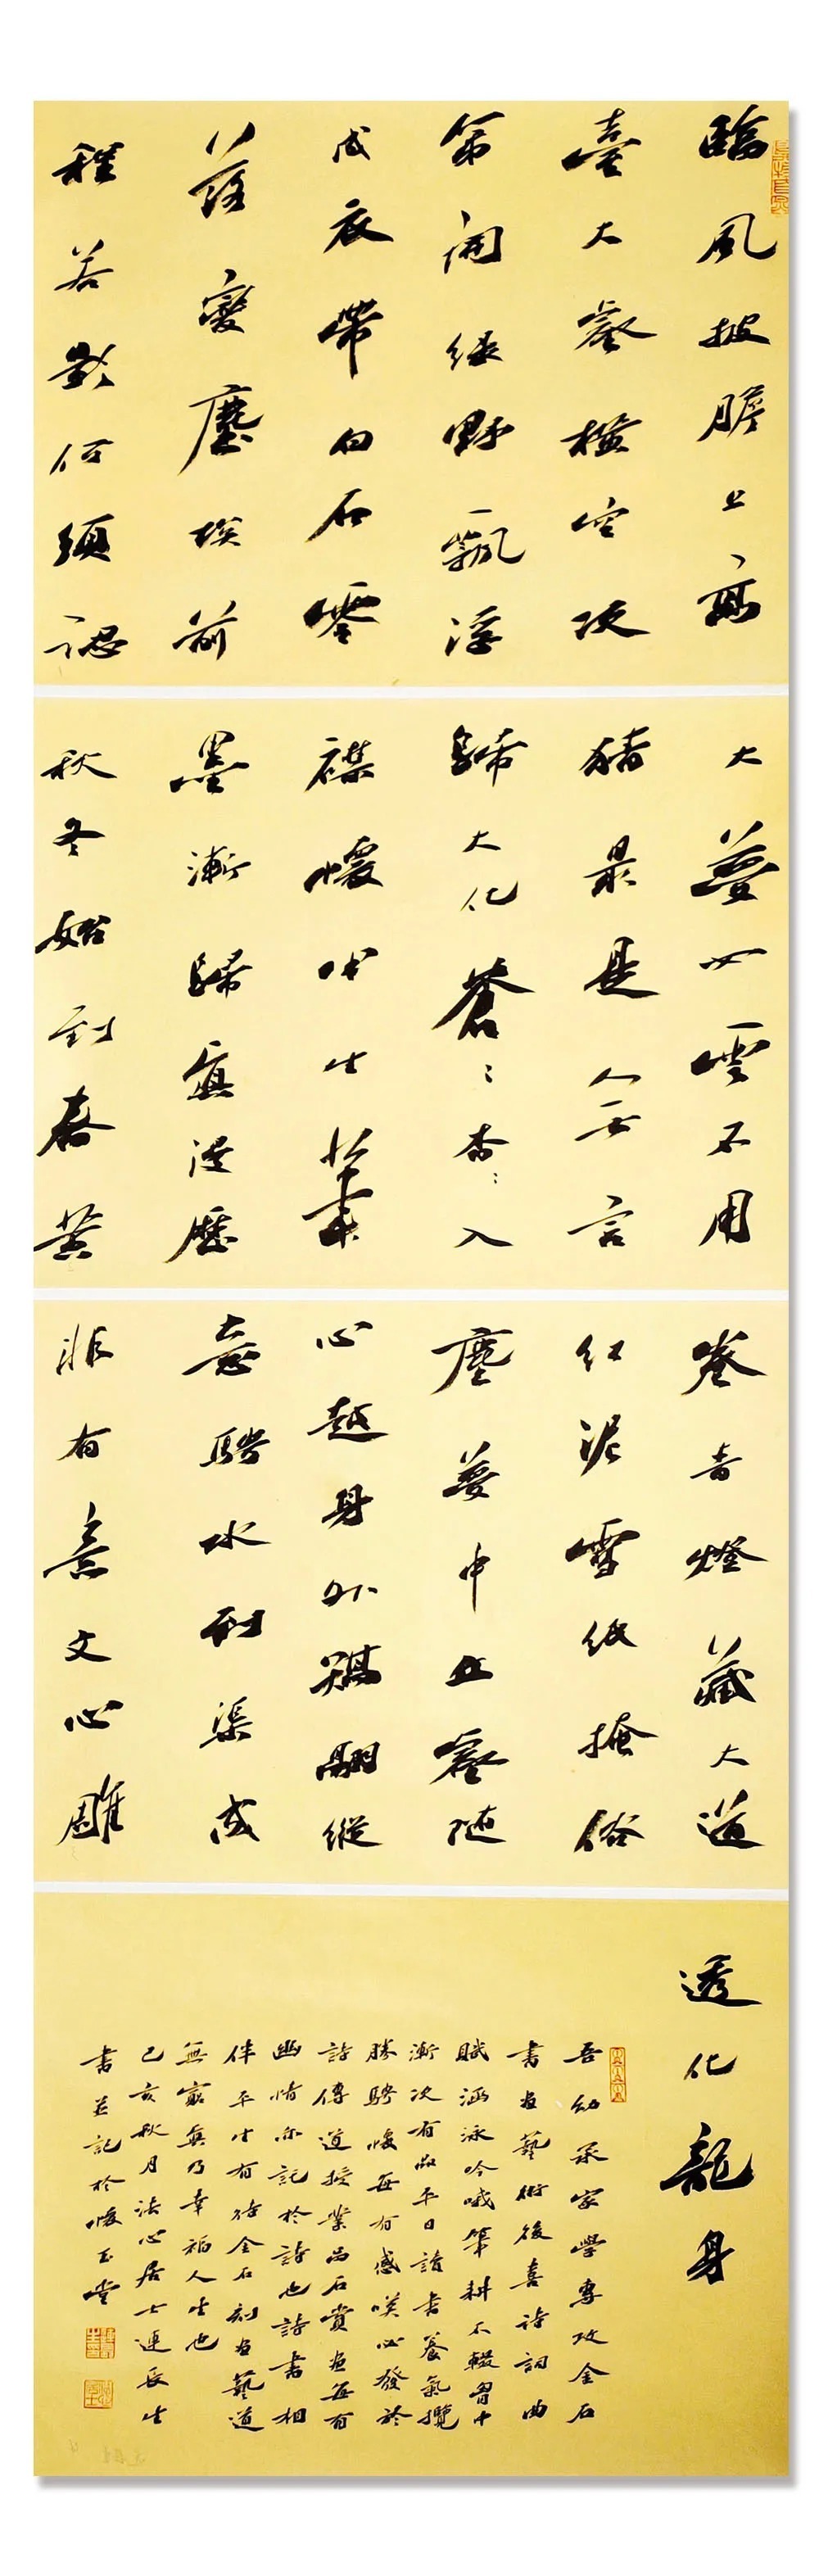 臨風披膽上高
臺大壑橫空次
第開緑野飄浮
成衣帶白石零
落變塵埃前
程若影何須認
大夢如雲不用
猜最是人無言
歸大化蒼〻杳〻入
襟懷生筆
墨漸歸真漫歷
秋冬始到春黄
卷青燈藏大道
紅泥雪紙掩俗
塵夢中丘壑隨
心越身外鵬縱
意騁水到渠成
非有意文心雕
透化龍身
吾幼承家學專攻金石
書画藝術後喜詩詞曲
賦涵泳吟哦筆耕不輟胷中
漸次有品平日讀書養氣攬
勝騁懷每有感心發於
詩傳道授業品石賞画每有
幽情亦記於詩也詩書相
伴平生有時金石刻画藝道
無窮無乃幸福人生也
己亥秋月法心居士連長生
書並記於懷玉堂